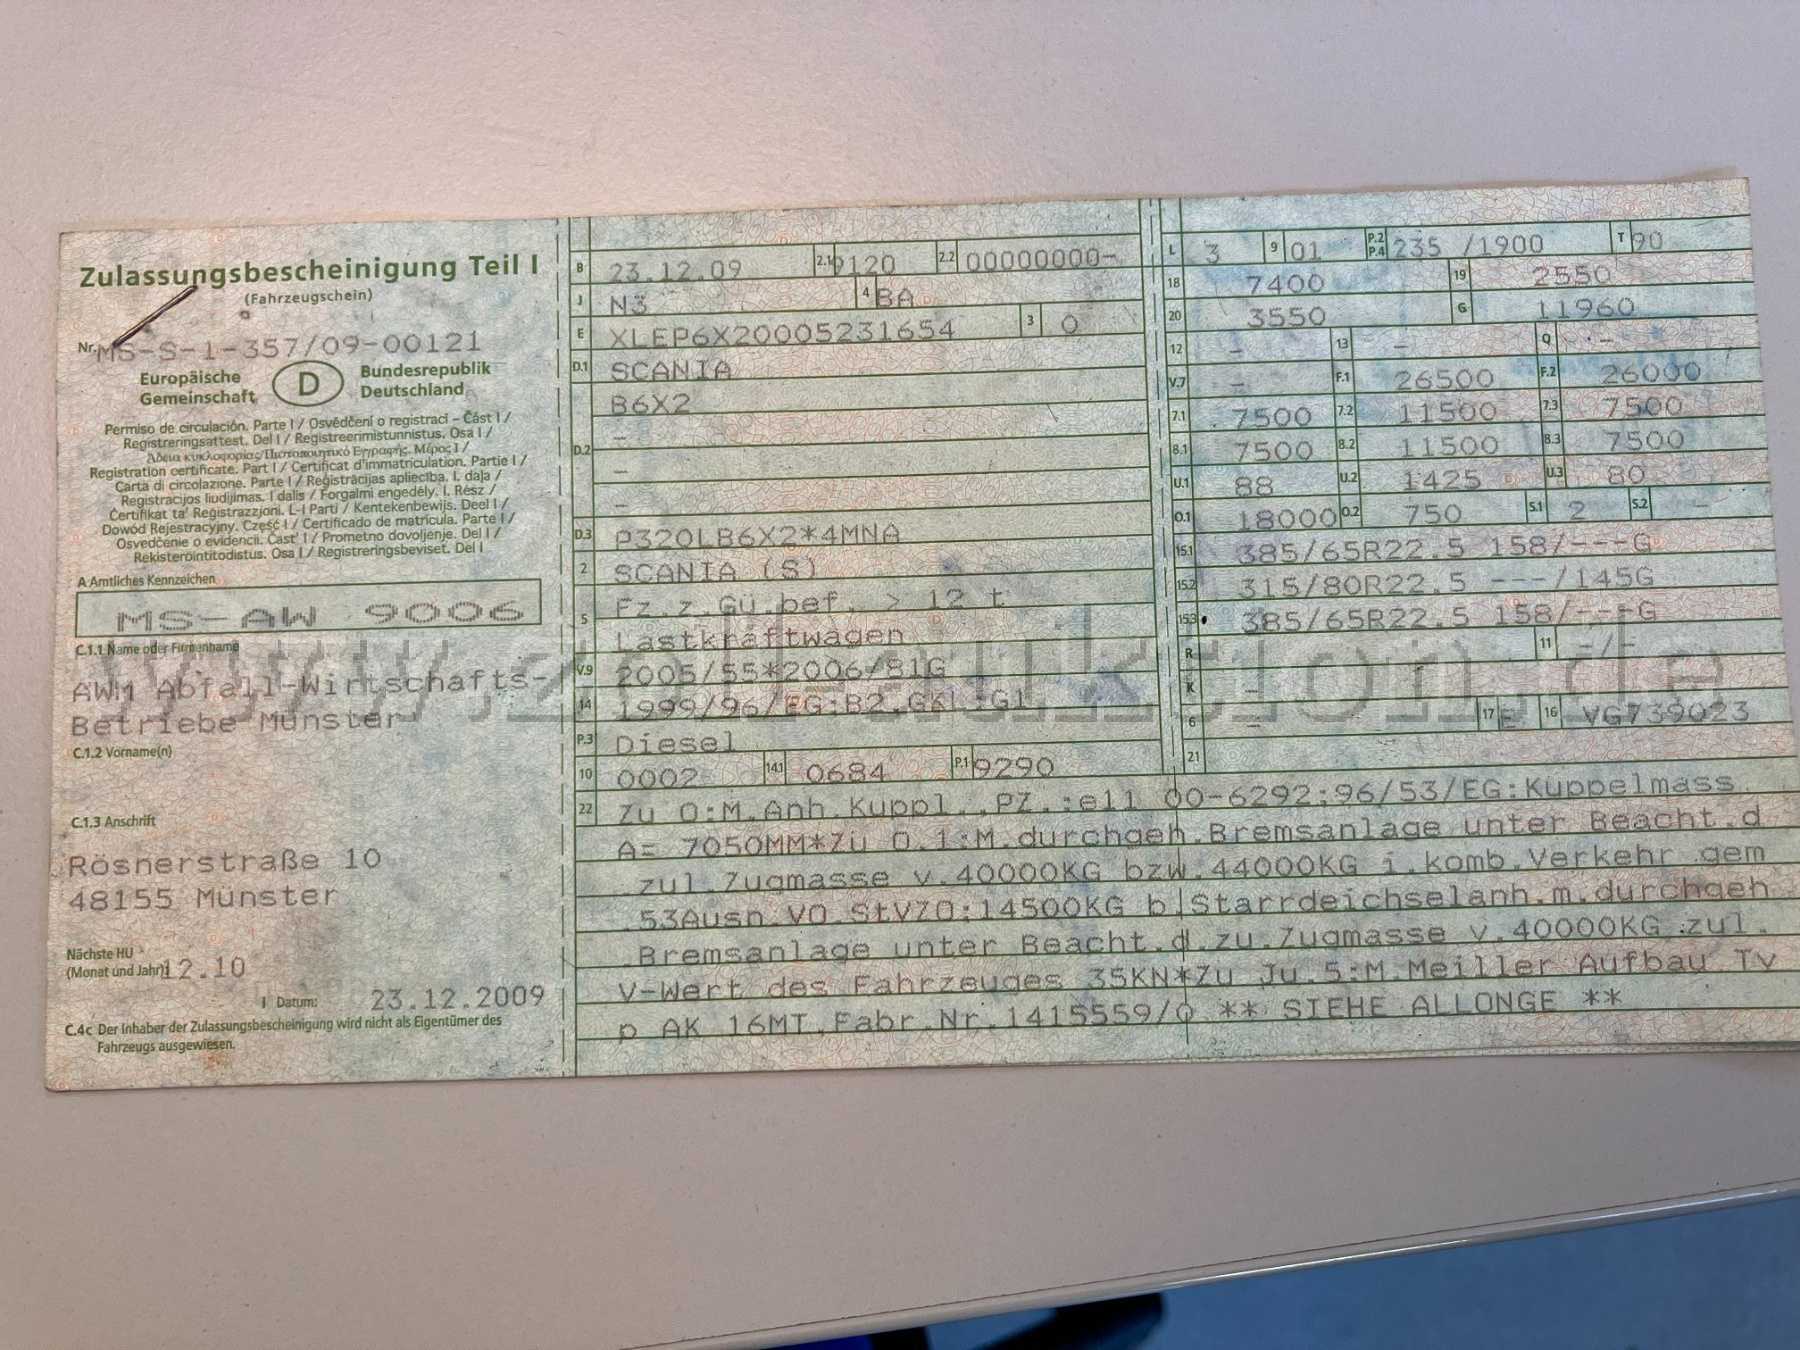 Zulassungsbescheinigung Teil I
(Fahrzeugschein)
Nr. MS-S-1-357/09-00121
Europäische Gemeinschaft
D
Bundesrepublik Deutschland
Permiso de circulación. Parte I / Osvědčení o registraci – Část I /
Registreringsattest. Del I / Registreerimistunnistus. Osa I /
Άδεια κυκλοφορίας/Πιστοποιητικό Εγγραφής. Μέρος I /
Registration certificate. Part I / Certificat d'immatriculation. Partie I /
Carta di circolazione. Parte I / Reģistrācijas apliecība. I. daļa /
Registracijos liudijimas. I dalis / Forgalmi engedély. I. Rész /
Ċertifikat ta' Reġistrazzjoni. L-I Parti / Kentekenbewijs. Deel I /
Dowód Rejestracyjny. Część I / Certificado de matrícula. Parte I /
Osvedčenie o evidencii. Časť I / Prometno dovoljenje. Del I /
Rekisteröintitodistus. Osa I / Registreringsbeviset. Del I
A Amtliches Kennzeichen
MS-AW 9006
C.1.1 Name oder Firmenname
AWM Abfall-Wirtschafts-
Betriebe Münster
C.1.2 Vorname(n)
C.1.3 Anschrift
Rösnerstraße 10
48155 Münster
Nächste HU
(Monat und Jahr) 12.10
I Datum: 23.12.2009
C.4c Der Inhaber der Zulassungsbescheinigung wird nicht als Eigentümer des
Fahrzeugs ausgewiesen.
B 23.12.09 2.1 9120 2.2 00000000-
J N3 4 BA
E XLEP6X20005231654 3 0
D.1 SCANIA
B6X2
-
D.2
-
-
-
D.3 P320LB6X2*4MNA
2 SCANIA (S)
Fz.z.Gü.bef. > 12 t
5
Lastkraftwagen
V.9 2005/55*2006/81G
14 1999/96/EG;B2,GKL:G1
P.3 Diesel
10 0002 14.1 0684 P.1 9290
L 3 9 01 P.2 P.4 235 /1900 T 90
18 7400 19 2550
20 3550 G 11960
12 - 13 - Q -
V.7 - F.1 26500 F.2 26000
7.1 7500 7.2 11500 7.3 7500
8.1 7500 8.2 11500 8.3 7500
U.1 88 U.2 1425 U.3 80
O.1 18000 O.2 750 S.1 2 S.2 -
15.1 385/65R22.5 158/---G
15.2 315/80R22.5 ---/145G
15.3 385/65R22.5 158/---G
R 11 -/-
K -
6 - 17 E 16 VG739023
21
22 Zu O:M.Anh.Kuppl.,PZ.:e11 00-6292;96/53/EG:Kuppelmass
A= 7050MM*Zu O.1:M.durchgeh.Bremsanlage unter Beacht.d
zul.Zugmasse v.40000KG bzw.44000KG i.komb.Verkehr gem
.53Ausn.VO.StVZO;14500KG b.Starrdeichselanh.m.durchgeh
Bremsanlage unter Beacht.d.zu.Zugmasse v.40000KG.zul.
V-Wert des Fahrzeuges 35KN*Zu Ju.5:M.Meiller Aufbau Ty
p AK 16MT,Fabr.Nr.1415559/0 ** SIEHE ALLONGE **